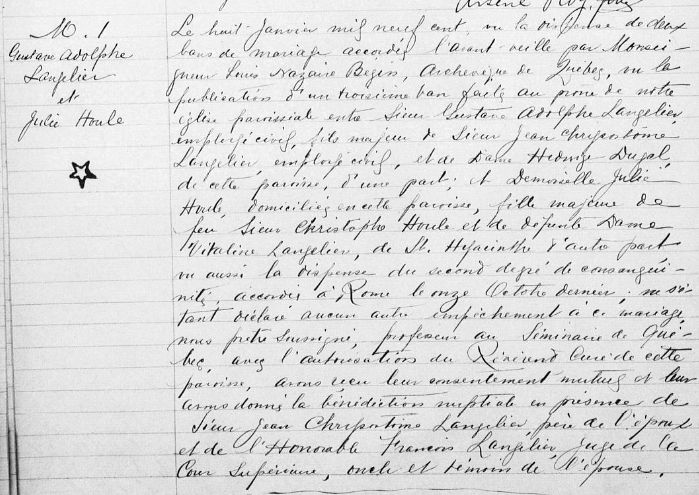 Arsène Roy, ptre
M. 1
Gustave Adolphe
Langelier
et
Julie Houle
Le huit Janvier mil neuf cent, vu la dispense de deux
bans de mariage accordée l'avant veille par Monsei-
gneur Louis Nazaire Bégin, Archevêque de Québec, vu la
publication d'un troisième ban faite au prône de notre
église paroissiale entre Sieur Gustave Adolphe Langelier,
employé civil, fils majeur de Sieur Jean Chrysostome
Langelier, employé civil, et de Dame Hedwige Dugal,
de cette paroisse, d'une part; et Demoiselle Julie
Houle, domiciliée en cette paroisse, fille majeure de
feu Sieur Christophe Houle et de défunte Dame
Vitaline Langelier, de St. Hyacinthe d'autre part
vu aussi la dispense du second degré de consangui-
nité, accordée à Rome le onze Octobre dernier; ne s'é-
tant déclaré aucun autre empêchement à ce mariage,
nous prêtre soussigné, professeur au Séminaire de Qué-
bec, avec l'autorisation du Révérend Curé de cette
paroisse, avons reçu leur consentement mutuel et leur
avons donné la bénédiction nuptiale en présence de
Sieur Jean Chrysostôme Langelier, père de l'époux
et de l'Honorable François Langelier, Juge de la
Cour Supérieure, oncle et témoin de l'épouse.